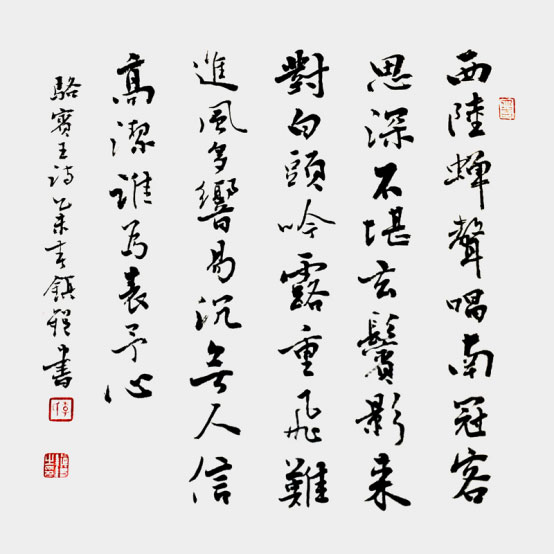 西陸蟬聲唱南冠客
思深不堪玄鬢影来
對白頭吟露重飛難
進風多響易沉無人信
高潔誰為表予心
駱賓王詩 乙未 書